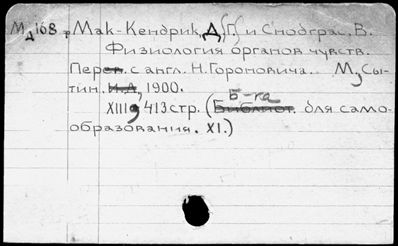 Мд168 Мак-Кендрик, Д.Г. и Снодграс, В.
Физиология органов чувств.
Перев. с англ. Н. Гороновича. М., Сы-
тин. И.Д, 1900.
Б-ка
XIII, 413 стр. (Библиот. для само-
образования. XI.)